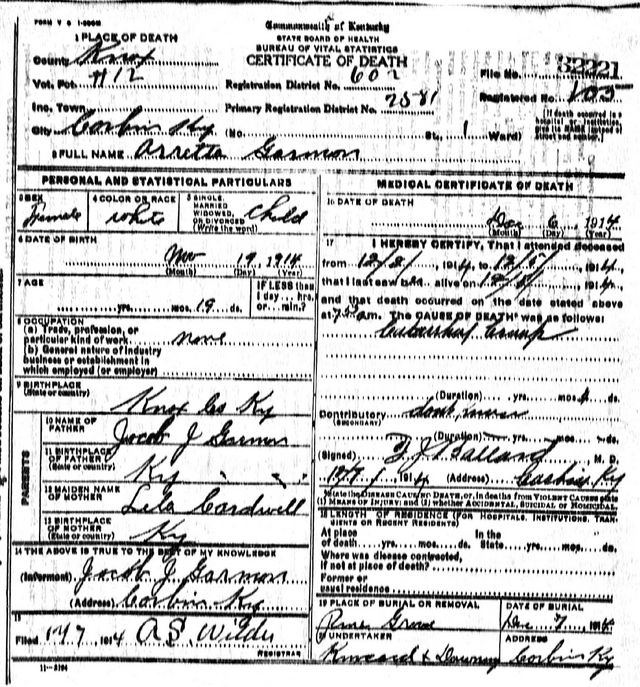 FORM V S 1-200M
Commonwealth of Kentucky
STATE BOARD OF HEALTH
BUREAU OF VITAL STATISTICS
CERTIFICATE OF DEATH
1 PLACE OF DEATH
County Knox
Vot. Pct. #12
Inc. Town
City Corbin Ky (No. St., 1 Ward)
Registration District No. 602
Primary Registration District No. 2581
File No. 32221
Registered No. 103
[If death occurred in a hospital or institution, give its NAME instead of street and number.]
2 FULL NAME Arretta Garmon
PERSONAL AND STATISTICAL PARTICULARS
3 SEX Female
4 COLOR OR RACE White
5 SINGLE, MARRIED WIDOWED, OR DIVORCED (Write the word) Child
6 DATE OF BIRTH
Nov 19, 1914
(Month) (Day) (Year)
7 AGE
yrs. mos. 19 ds.
IF LESS than 1 day... hrs. or... min.?
8 OCCUPATION
(a) Trade, profession, or particular kind of work none
(b) General nature of industry business or establishment in which employed (or employer)
9 BIRTHPLACE
(State or country) Knox Co Ky
PARENTS
10 NAME OF FATHER Jacob J Garmon
11 BIRTHPLACE OF FATHER (State or country) Ky
12 MAIDEN NAME OF MOTHER Lela Cardwell
13 BIRTHPLACE OF MOTHER (State or country) Ky
14 THE ABOVE IS TRUE TO THE BEST OF MY KNOWLEDGE
(Informant) Jacob J. Garmon
(Address) Corbin Ky
15
Filed 1914 A S. Wilder
REGISTRAR
11-3194
MEDICAL CERTIFICATE OF DEATH
16 DATE OF DEATH
Dec 6, 1914
(Month) (Day) (Year)
17 I HEREBY CERTIFY, That I attended deceased
from 12/2/, 1914, to 12/5/, 1914,
that I last saw h alive on 12/5/, 1914,
and that death occurred on the date stated above
at m. The CAUSE OF DEATH was as follows:
Catarrhal Croup
(Duration) yrs. mos. ds.
Contributory dont know
(SECONDARY)
(Duration) yrs. mos. ds.
(Signed) M. D.
1914 (Address) Corbin Ky
State the DISEASE CAUSING DEATH, or, in deaths from VIOLENT CAUSES state (1) MEANS OF INJURY; and (2) whether ACCIDENTAL, SUICIDAL or HOMICIDAL.
18 LENGTH OF RESIDENCE (FOR HOSPITALS, INSTITUTIONS, TRANSIENTS OR RECENT RESIDENTS)
At place of death yrs. mos. ds. In the State yrs. mos. ds.
Where was disease contracted, if not at place of death?
Former or usual residence
19 PLACE OF BURIAL OR REMOVAL
Pine Grove
DATE OF BURIAL
Dec 7, 1914
20 UNDERTAKER
Kincaid & Downey
ADDRESS
Corbin Ky